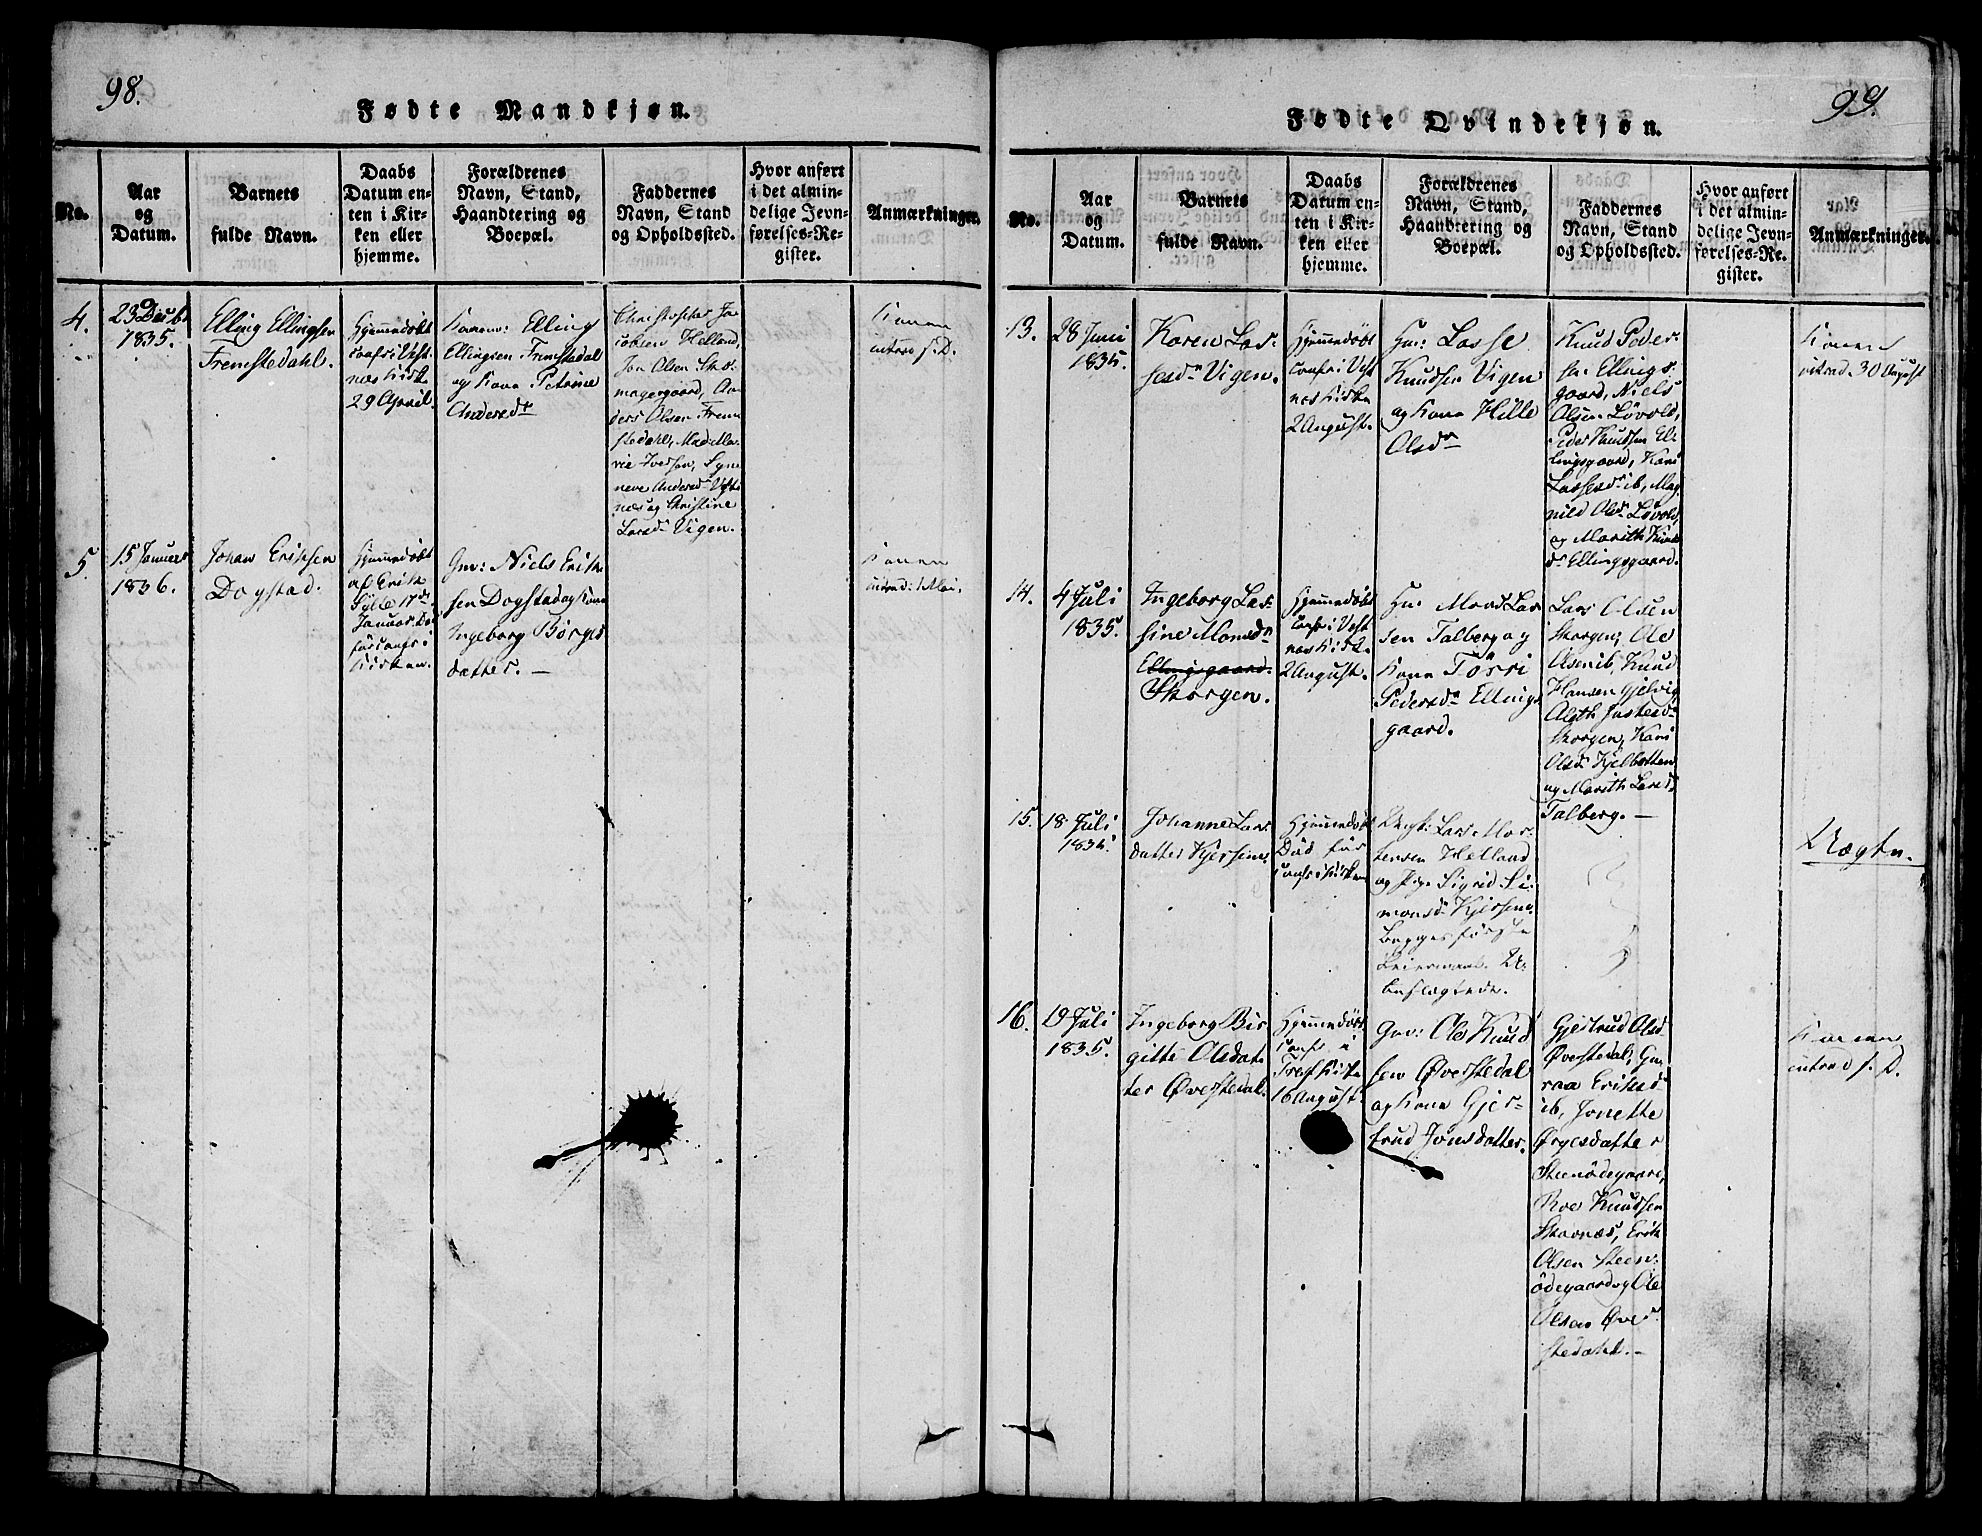 98.
Fødte Mandkjøn.
No.
Aar
og
Datum.
Barnets
fulde Navn.
Daabs
Datum en-
ten i Kir-
ken eller
hjemme.
Forældrenes
Navn, Stand,
Haandtering og
Boepæl.
Faddernes
Navn, Stand
og Opholdssted.
Hvor anført
i det almin-
delige Jevn-
førelses-Re-
gister.
Anmærkninger.
4.
23 Decbr
1835.
Elling Ellingsen
Fremstedahl.
Hjemmedøbt
confr: i Vest
næs Kirke
29 April.
Elling
Ellingsen Fremstedal
og Kone Petrine
Andersdr
Christopher Ja-
cobsen Helland,
Jon Olsen Sko-
magergaard, An-
ders Olsen Frem
stedahl,
rie Iversen, Syn
neve Andersdr Vest
næs og Christine
Larsd. Vigen.
Konen
introd f. D.
5.
15 Januar
1836.
Johan Eriksen
Dogstad.
Hjemmedøbt
af Erik
Sylte 17de
Januar. Dø
før confr i
Kirken.
Gm: Niels Erik
sen Dogstad og Kone
Ingeborg Børges
datter. —
Konen
introd: 1 Mai.
99.
Fødte Qvindekjøn.
No.
Aar
og
Datum.
Barnets
fulde Navn.
Daabs
Datum en-
ten i Kir-
ken eller
hjemme.
Forældrenes
Navn, Stand,
Haandtering og
Boepæl.
Faddernes
Navn, Stand
og Opholdssted.
Hvor anført
i det almin-
delige Jevn-
førelses-Re-
gister.
Anmærkninger.
13.
28 Juni
1835.
Karen Las-
sesdr Vigen.
Hjemmedøbt
confr i Vest
næs Kirke
2 August.
Hm: Lasse
Knudsen Vigen
og Kone Hille
Olsdr
Knud Peder-
sen Ellings-
gaard, Niels
Olsen Løvold,
Peder Knudsen El-
lingsgaard, Kari
Lassesdr ib, Mag
nild Olsdr Løvold,
og Marith Knuds
dr Ellingsgaard.
Konen
introd. 30 August
14.
4 Juli
1835.
Ingeborg Las-
sine Monsdr
Ellingsgaard.
Skorgen.
Hjemmedøbt
confr i Vest
næs Kirke
2 August.
Hm: Mons Las
sen Talberg og
Kone Torri
Pedersdr Ellings
gaard.
Lars Olsen
Skorgen, Ole
Olsen ib, Knud
Hansen Gjelvig,
Skorgen, Kari
Olsdr Kjelbotten
og Marith Larsd.
Talberg. —
15.
18 Juli
1835.
Johanne Lars
datter Kjersem.
Hjemmedøbt
Død før
confr i Kirken
Lars Mor-
tensen Helland
og Pige Sigrid Si-
monsd. Kjersem.
Begges første
Leiermaal. U-
beslægtede.
Uægte.
16.
19 Juli
1835.
Ingeborg Bir
gitte Olsdat-
ter Øverstedal.
Hjemmedøbt
confr i
Tresf Kirke
16 August.
Gm: Ole Knud
sen Øverstedal
og Kone Gjer-
trud Jonsdatter.
Gjertrud Olsd
Øverstedal, Gu-
roe Eriksd
ib, Jonette
Ørgesdatter
Steenødegaard,
Roe Knudsen
Skavnæs, Erik
Olsen Steen-
ødegaard og Ole
Olsen Øver-
stedahl. —
Konen
introd f. D.